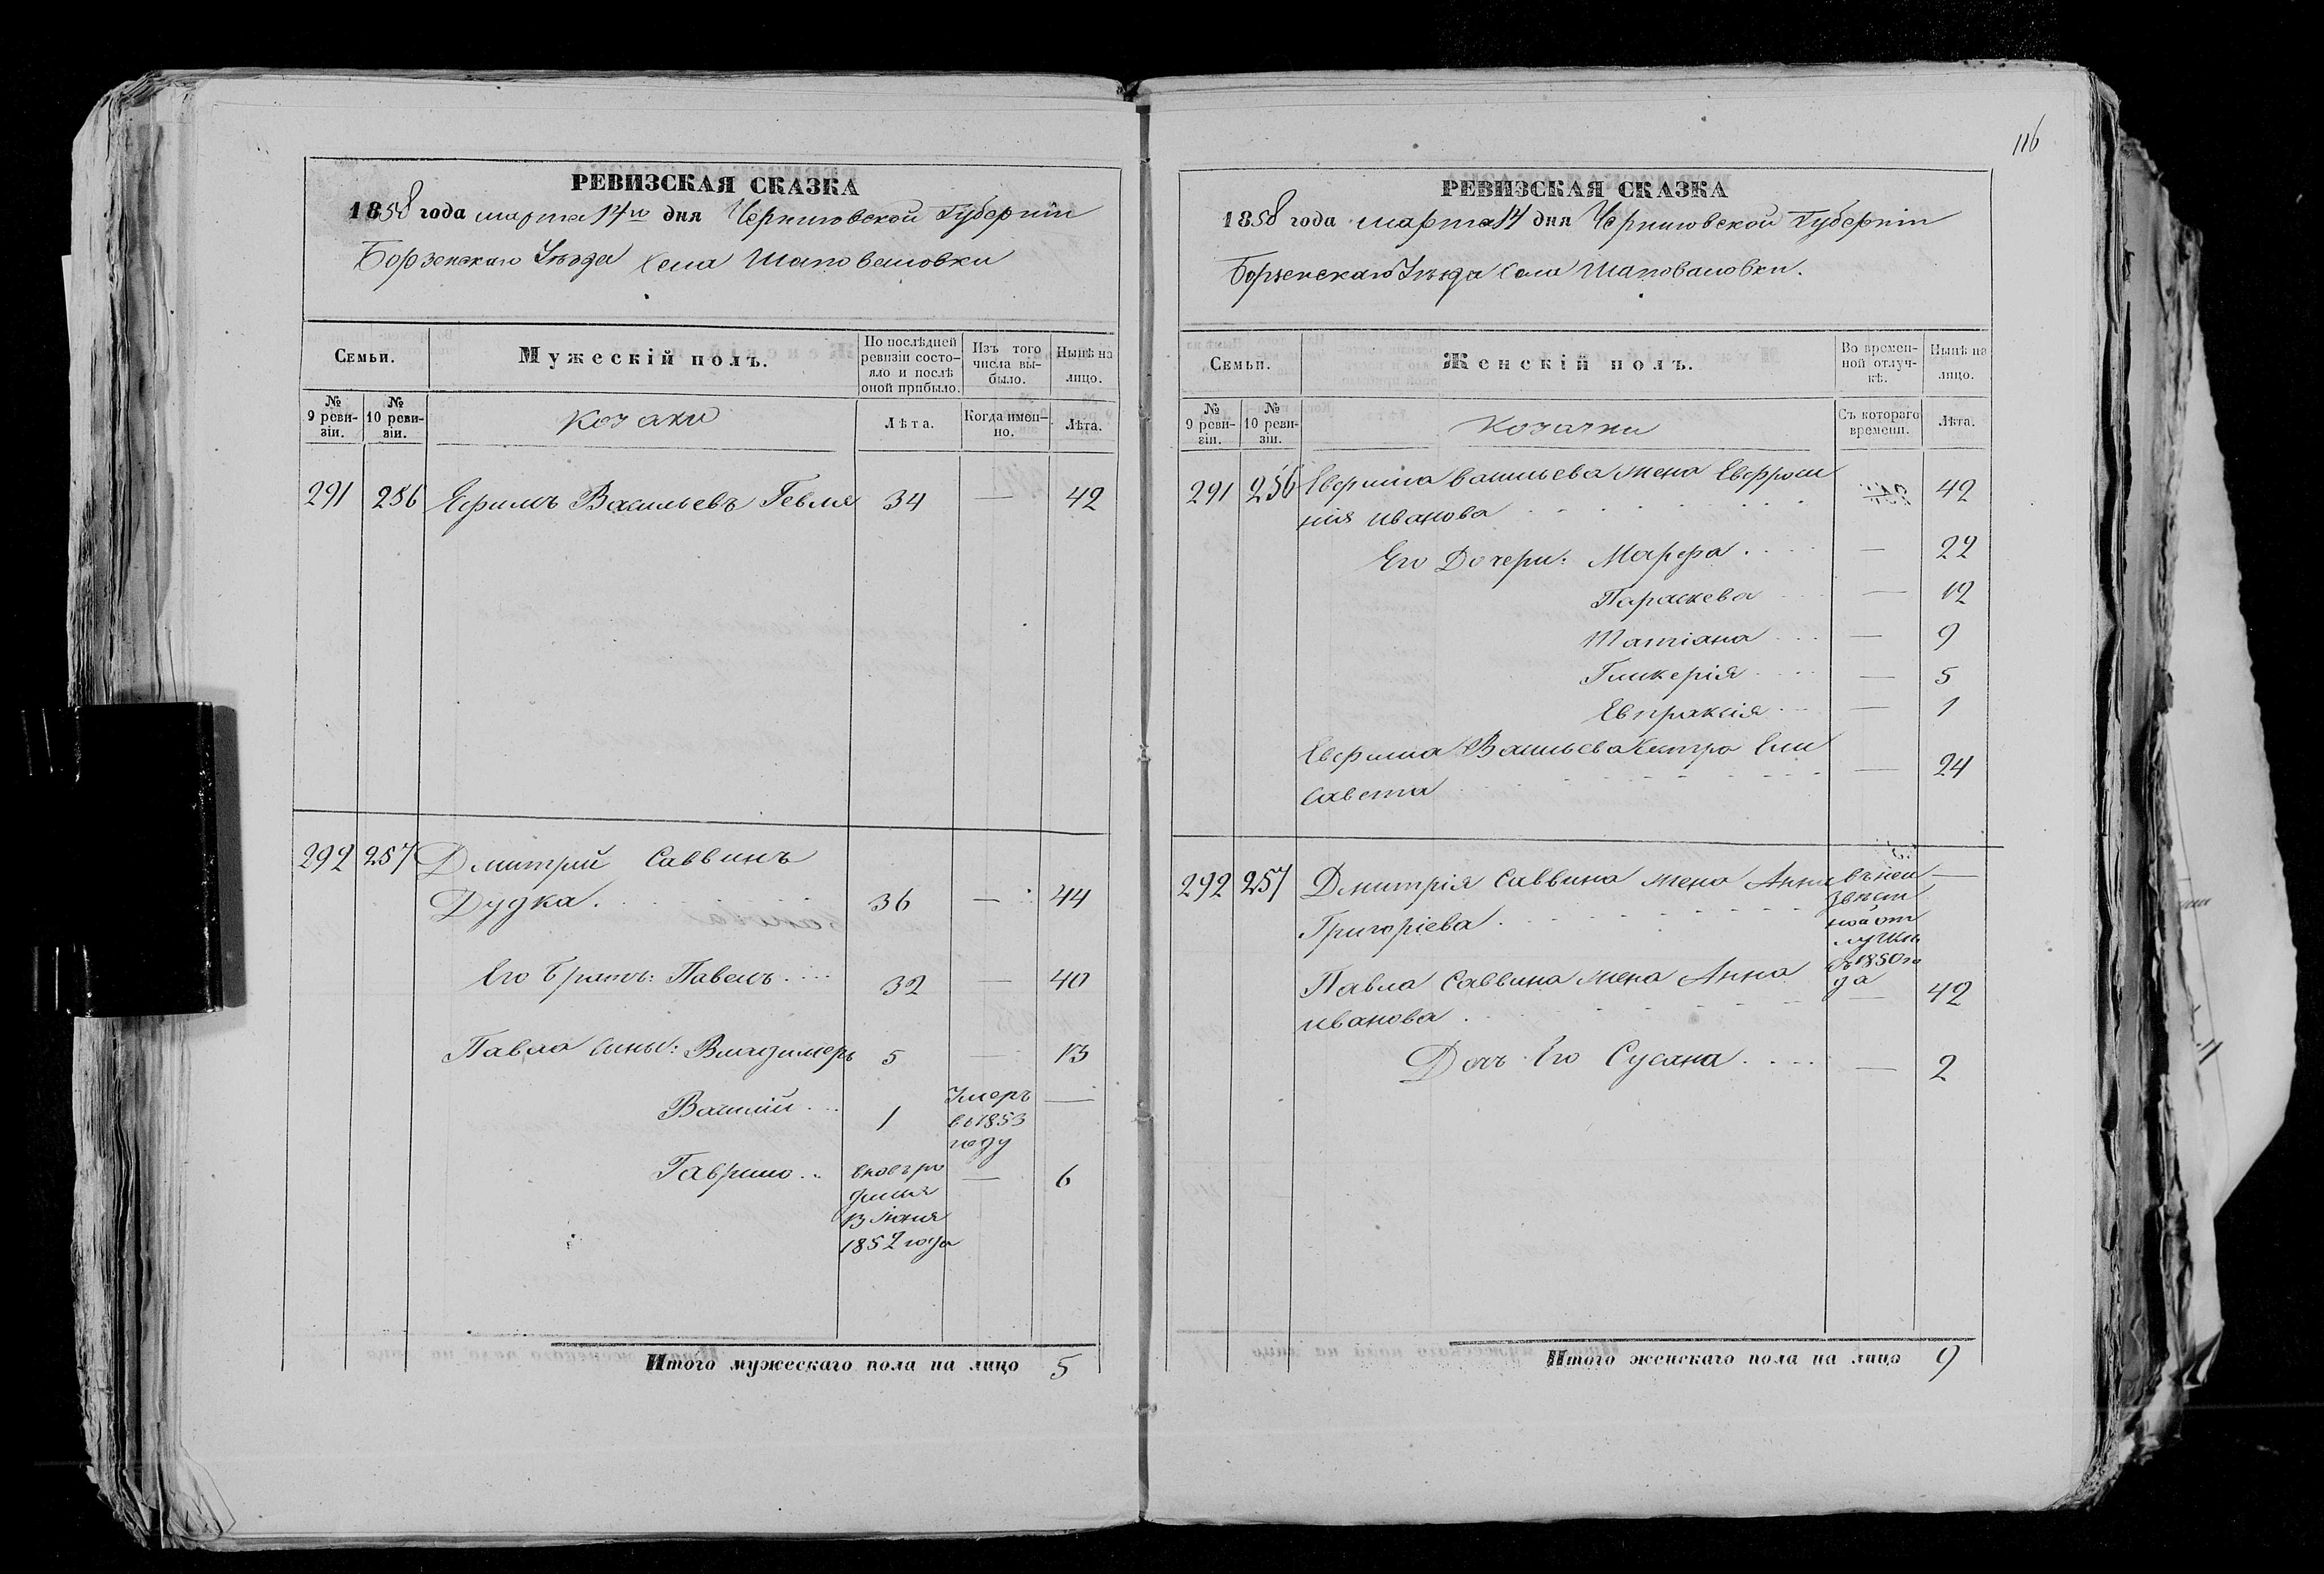 РЕВИЗСКАЯ СКАЗКА
1858 года марта 14го дня Черниговской Губерніи
Борзенскаго Уѣзда Села Шаповаловки
Семьи.
Мужескій полъ.
По послѣдней ревизіи состояло и послѣ оной прибыло.
Изъ того числа выбыло.
Нынѣ на лицо.
№ 9 ревизіи.
№ 10 ревизіи.
Козаки
Лѣта.
Когда именно.
Лѣта.
291 286 Ефимъ Васильевъ Гевля 34 — 42
292 257 Дмитрій Саввинъ
Дудка. 36 — 44
Его Братъ: Павелъ 32 — 40
Павла сыны: Владимеръ 5 — 13
Василій 1 Умеръ —
въ 1853
году
Гаврило вновъ ро — 6
дился
13 Іюня
1852 года
Итого мужескаго пола на лицо 5
116
РЕВИЗСКАЯ СКАЗКА
1858 года марта 14 дня Черниговской Губерніи
Борзенскаго Уѣзда Села Шаповаловки.
Семьи.
Женскій полъ.
Во временной отлучкѣ.
Нынѣ на лицо.
№ 9 ревизіи.
№ 10 ревизіи.
Козачки
Съ котораго времени.
Лѣта.
291 256 Евфима Васильева жена Евфроси
нія Иванова 42
Его Дочери: Марфа — 22
Параскева — 12
Татіана — 9
Гликерія — 5
Евпраксія — 1
Евфима Васильева Сестра Ели
савета — 24
292 257 Дмитрія Саввина жена Анна въ неи —
Григоріева звѣст
ной от
лучкѣ
съ 1850 го
да
Павла Саввина жена Анна
Иванова — 42
Дочь Его Сусана — 2
Итого женскаго пола на лицо 9